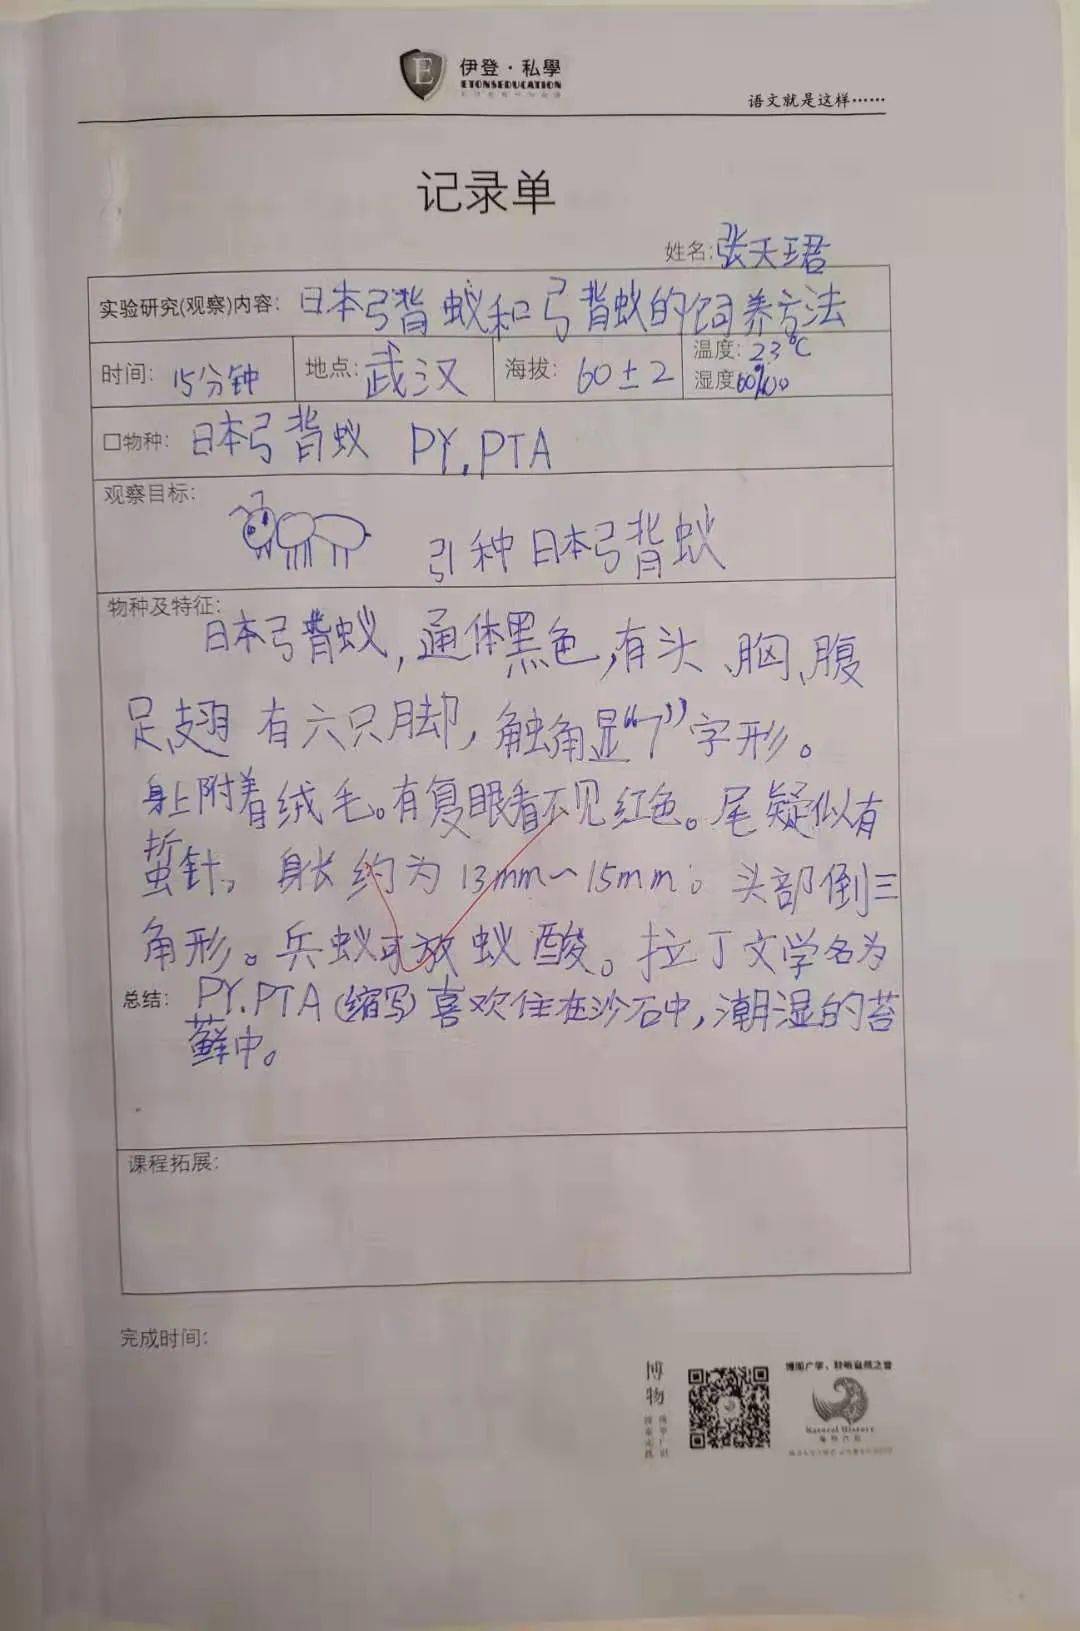 伊登·私學
ETONSEDUCATION
语文就是这样……
记录单
姓名:张天珺
实验研究(观察)内容: 日本弓背蚁和弓背蚁的饲养方法
时间: 15分钟 地点: 武汉 海拔: 60±2 温度: 23℃
湿度
口物种: 日本弓背蚁 PY.PTA
观察目标:
引种日本弓背蚁
物种及特征:
日本弓背蚁,通体黑色,有头、胸、腹
足、翅 有六只脚,触角显“7”字形。
身上附着绒毛。有复眼看不见红色。尾疑似有
蜇针。身长约为13mm~15mm。头部倒三
角形。兵蚁可放蚁酸。拉丁文学名为
总结: PY.PTA(缩写)喜欢住在沙石中,潮湿的苔
藓中。
课程拓展:
完成时间:
博物
Natural History